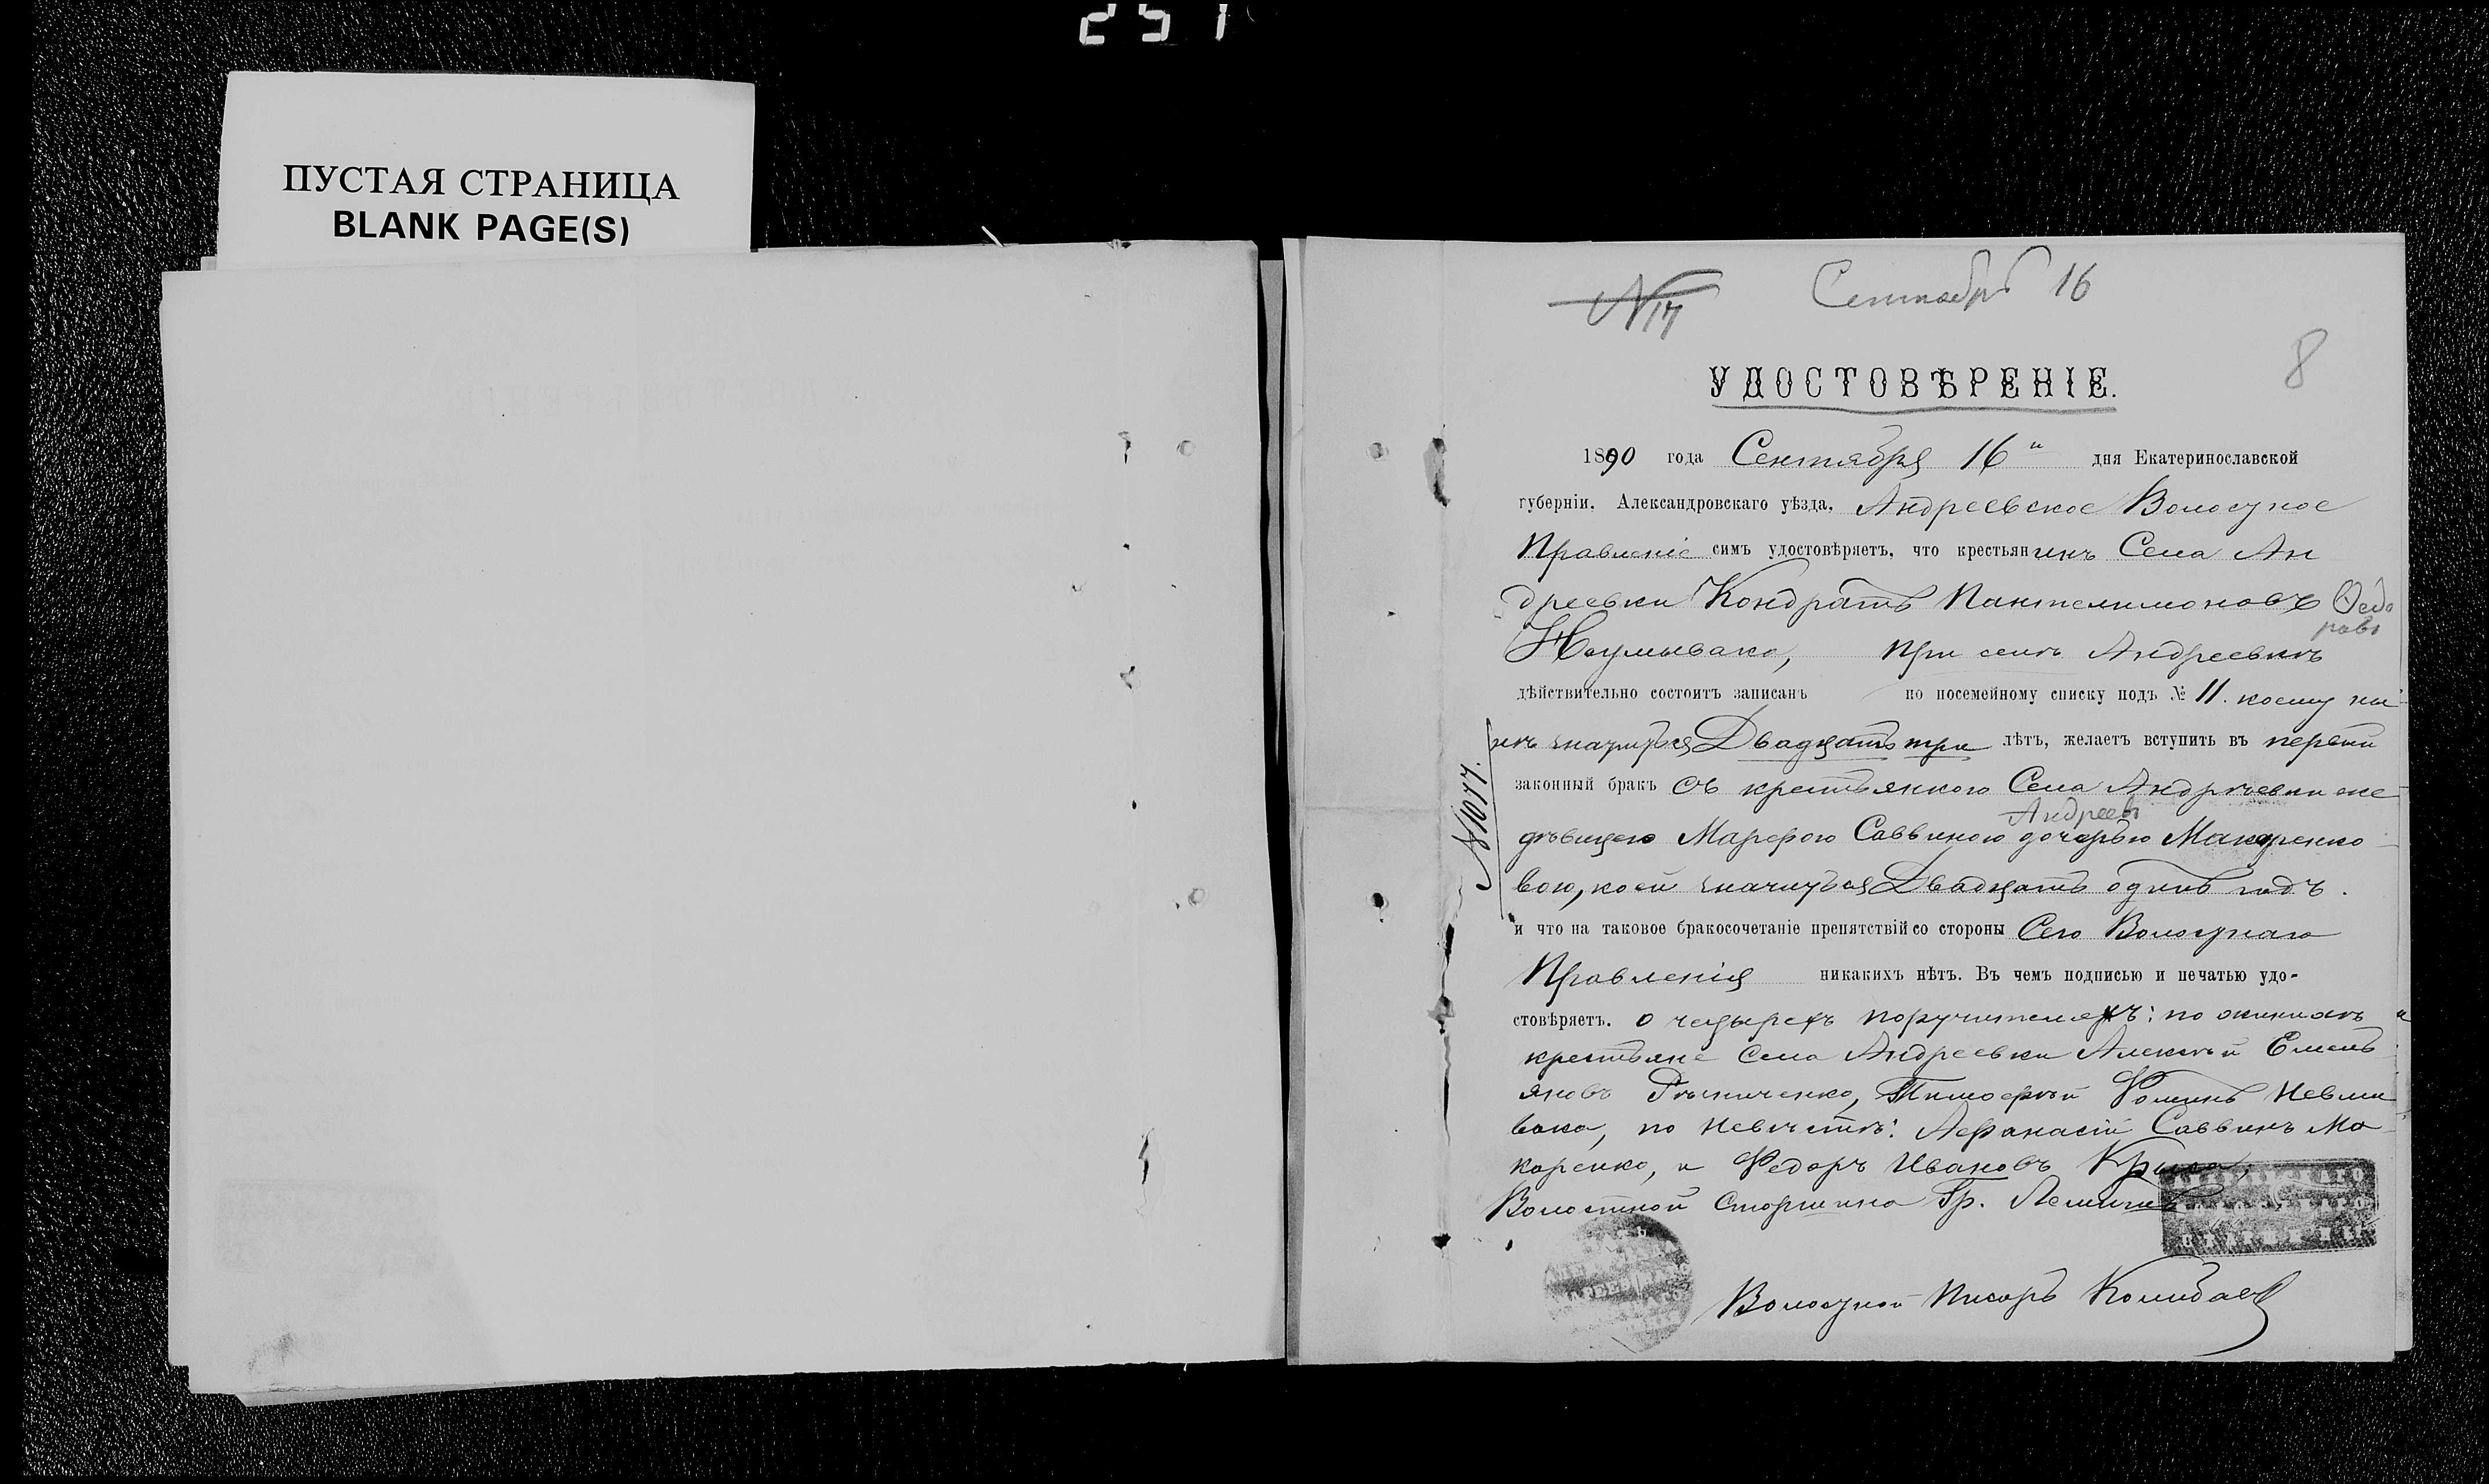 251
ПУСТАЯ СТРАНИЦА
BLANK PAGE(S)
N 17
Сентябрь 16
8
УДОСТОВѢРЕНІЕ.
1890 года Сентября 16 дня Екатеринославской
губерніи, Александровскаго уѣзда, Андреевское Волостное
Правленіе симъ удостовѣряетъ, что крестьянинъ Села Ан
дреевки Кондратъ Пантелимоновъ Федо
ровъ
При семъ Андреевкѣ
дѣйствительно состоитъ записанъ по посемейному списку подъ № 11. коему ны
нѣ значится Двадцать три лѣтъ, желаетъ вступить въ первый
законный бракъ съ крестьянкою Села Андреевки
Андреев
дѣвицею Марфою Саввиною дочерью Макаренко
вою, коей значится Двадцать одинъ годъ.
и что на таковое бракосочетаніе препятствій со стороны Сего Волостнаго
Правленія никакихъ нѣтъ. Въ чемъ подписью и печатью удо-
стовѣряетъ. о четырехъ поручителяхъ: по женихѣ
крестьяне Села Андреевки Алексѣй Емель
яновъ Тимофѣй Фоминъ Невмы
вака, по невѣстѣ: Афанасій Саввинъ Ма
каренко, и Федоръ Ивановъ Крыса,
Волостной Старшина Гр.
Волостной Писарь
N 1077.